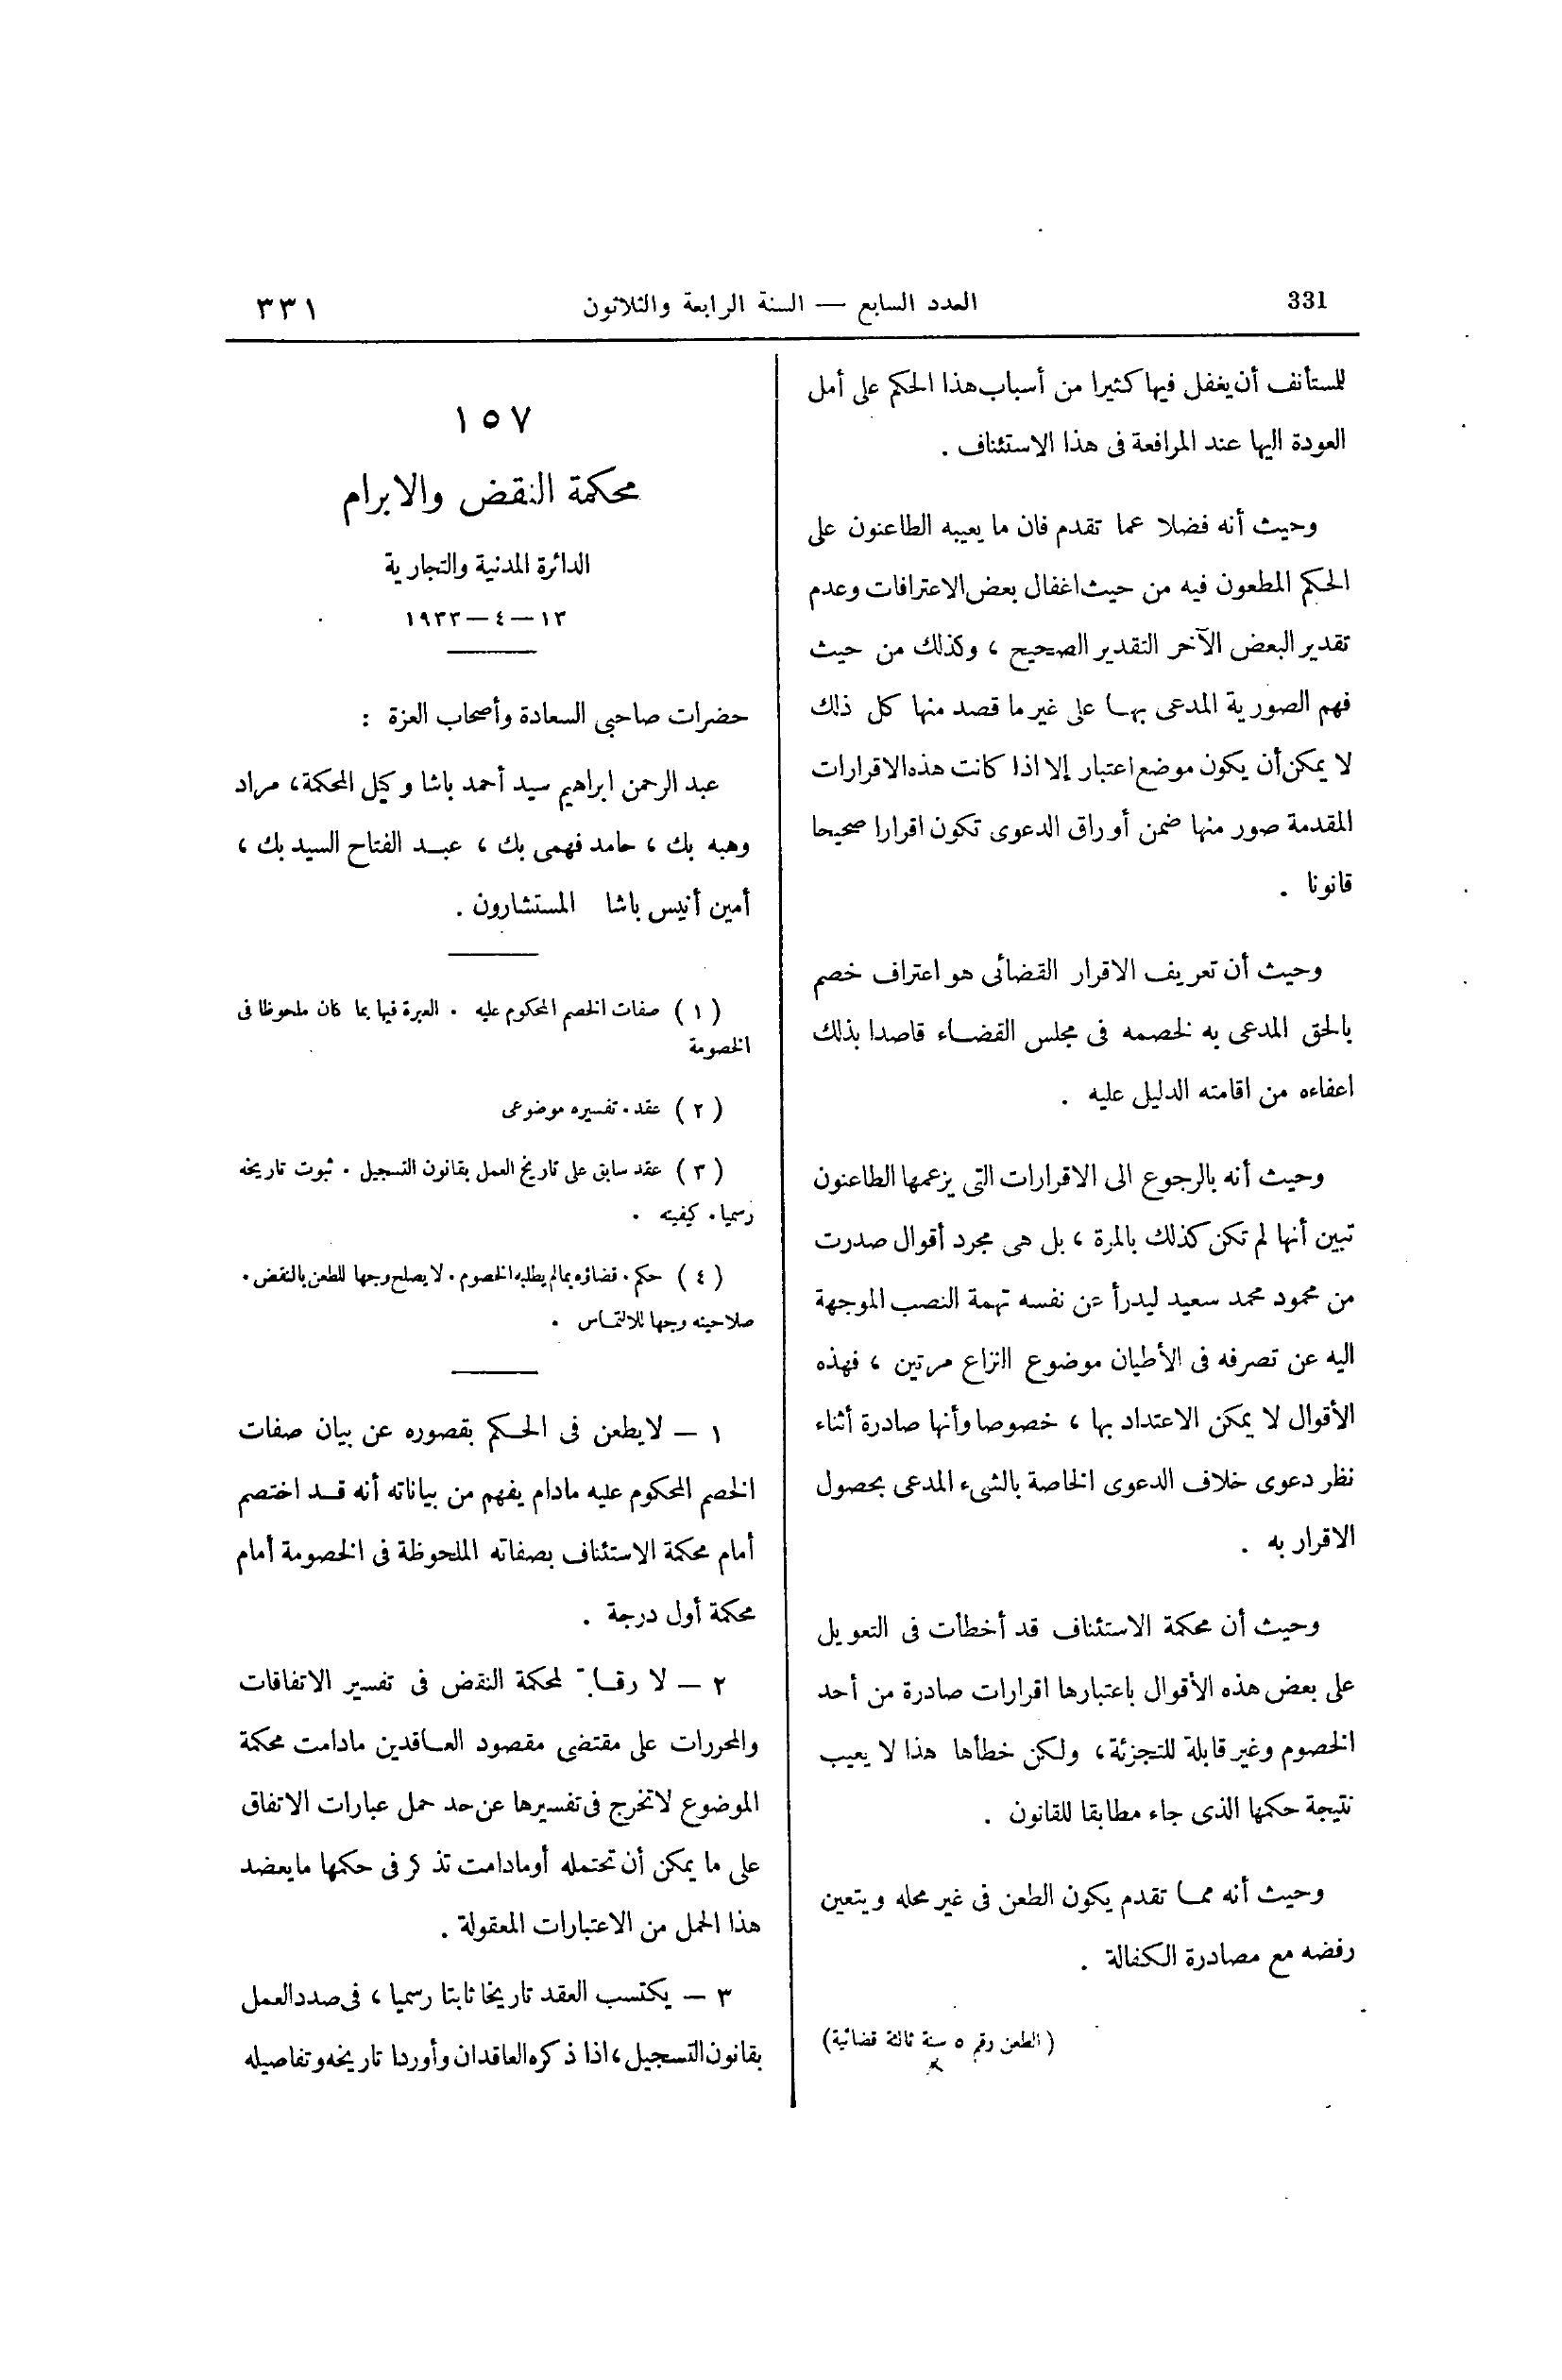 331
العدد السابع — السنة الرابعة والثلاثون
٣٣١
للمستأنف أن يغفل فيها كثيرا من أسباب هذا الحكم على أمل
العودة اليها عند المرافعة فى هذا الاستئناف .
وحيث أنه فضلا عما تقدم فان ما يعيبه الطاعنون على
الحكم المطعون فيه من حيث اغفال بعض الاعترافات وعدم
تقدير البعض الآخر التقدير الصحيح ، وكذلك من حيث
فهم الصورية المدعى بها على غير ما قصد منها كل ذلك
لا يمكن أن يكون موضع اعتبار إلا اذا كانت هذه الاقرارات
المقدمة صور منها ضمن أوراق الدعوى تكون اقرارا صحيحا
قانونا .
وحيث أن تعريف الاقرار القضائى هو اعتراف خصم
بالحق المدعى به لخصمه فى مجلس القضاء قاصدا بذلك
اعفاءه من اقامته الدليل عليه .
وحيث أنه بالرجوع الى الاقرارات التى يزعمها الطاعنون
تبين أنها لم تكن كذلك بالمرة ، بل هى مجرد أقوال صدرت
من محمود محمد سعيد ليدرأ عن نفسه تهمة النصب الموجهة
اليه عن تصرفه فى الأطيان موضوع النزاع مرتين ، فهذه
الأقوال لا يمكن الاعتداد بها ، خصوصا وأنها صادرة أثناء
نظر دعوى خلاف الدعوى الخاصة بالشىء المدعى بحصول
الاقرار به .
وحيث أن محكمة الاستئناف قد أخطأت فى التعويل
على بعض هذه الأقوال باعتبارها اقرارات صادرة من أحد
الخصوم وغير قابلة للتجزئة ، ولكن خطأها هذا لا يعيب
نتيجة حكمها الذى جاء مطابقا للقانون .
وحيث أنه مما تقدم يكون الطعن فى غير محله ويتعين
رفضه مع مصادرة الكفالة .
( الطعن رقم ٥ سنة ثالثة قضائية)
١٥٧
محكمة النقض والابرام
الدائرة المدنية والتجارية
١٣ — ٤ — ١٩٣٣
حضرات صاحبى السعادة وأصحاب العزة :
عبد الرحمن ابراهيم سيد أحمد باشا وكيل المحكمة ، مراد
وهبه بك ، حامد فهمى بك ، عبد الفتاح السيد بك ،
أمين أنيس باشا المستشارون .
( ١ ) صفات الخصم المحكوم عليه . العبرة فيها بما كان ملحوظا فى
الخصومة
( ٢ ) عقد . تفسيره موضوعى
( ٣ ) عقد سابق على تاريخ العمل بقانون التسجيل . ثبوت تاريخه
رسميا . كيفيته .
( ٤ ) حكم . قضاؤه بمالم يطلبه الخصوم . لا يصلح وجها للطعن بالنقض .
صلاحيته وجها للالتماس .
١ — لا يطعن فى الحكم بقصوره عن بيان صفات
الخصم المحكوم عليه مادام يفهم من بياناته أنه قد اختصم
أمام محكمة الاستئناف بصفاته الملحوظة فى الخصومة أمام
محكمة أول درجة .
٢ — لا رقابة لمحكمة النقض فى تفسير الاتفاقات
والمحررات على مقتضى مقصود العاقدين مادامت محكمة
الموضوع لا تخرج فى تفسيرها عن حد حمل عبارات الاتفاق
على ما يمكن أن تحتمله أومادامت تذكر فى حكمها مايعضد
هذا الحمل من الاعتبارات المعقولة .
٣ — يكتسب العقد تاريخا ثابتا رسميا ، فى صدد العمل
بقانون التسجيل ، اذا ذكره العاقدان وأوردا تاريخه وتفاصيله